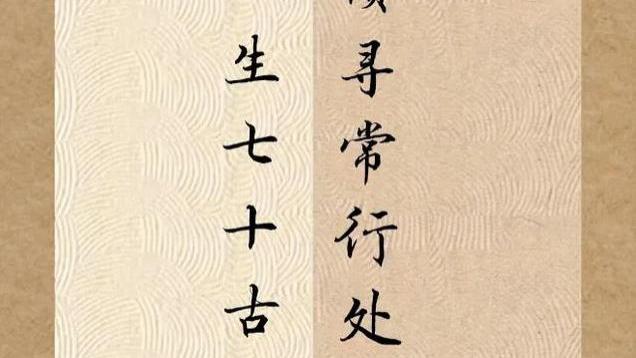 寻常行处
生七十古